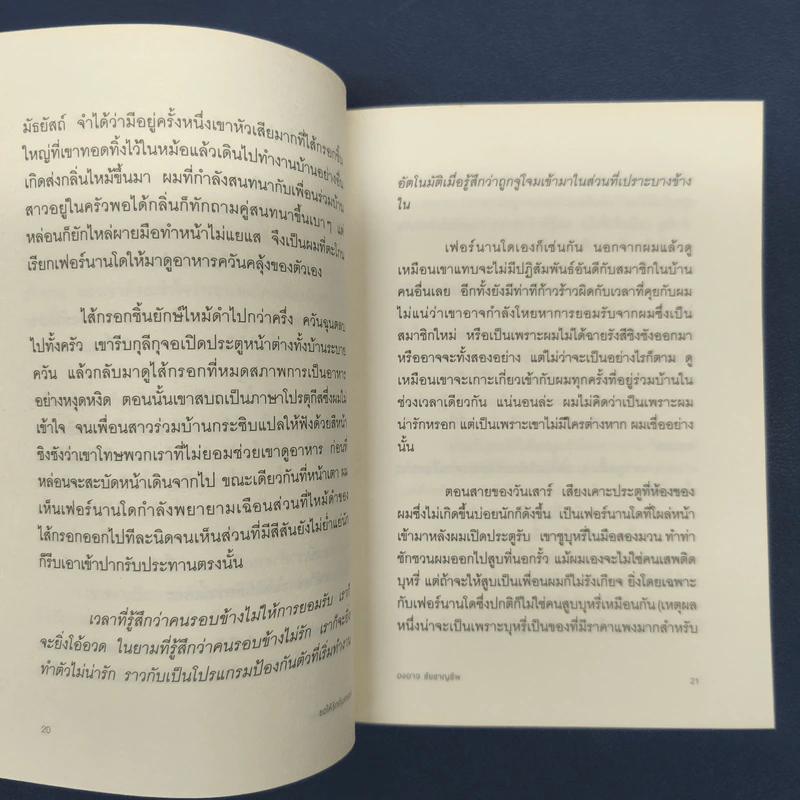 มัธยัสถ์ จำได้ว่ามีอยู่ครั้งหนึ่งเขาหัวเสียมากที่ไส้กรอกชิ้น
ใหญ่ที่เขาทอดทิ้งไว้ในหม้อแล้วเดินไปทำงานบ้านอย่างอื่น
เกิดส่งกลิ่นไหม้ขึ้นมา ผมที่กำลังสนทนากับเพื่อนร่วมบ้าน
สาวอยู่ในครัวพอได้กลิ่นก็ทักถามคู่สนทนาขึ้นเบาๆ แต่
หล่อนก็ยักไหล่ผายมือทำหน้าไม่แยแส จึงเป็นผมที่ตะโกน
เรียกเฟอร์นานโดให้มาดูอาหารควันคลุ้งของตัวเอง
ไส้กรอกชิ้นยักษ์ไหม้ดำไปกว่าครึ่ง ควันฉุนตลบ
ไปทั้งครัว เขารีบกุลีกุจอเปิดประตูหน้าต่างทั้งบ้านระบาย
ควัน แล้วกลับมาดูไส้กรอกที่หมดสภาพการเป็นอาหาร
อย่างหงุดหงิด ตอนนั้นเขาสบถเป็นภาษาโปรตุกีสซึ่งผมไม่
เข้าใจ จนเพื่อนสาวร่วมบ้านกระซิบแปลให้ฟังด้วยสีหน้า
ชิงชังว่าเขาโทษพวกเราที่ไม่ยอมช่วยเขาดูอาหาร ก่อนที่
หล่อนจะสะบัดหน้าเดินจากไป ขณะเดียวกันที่หน้าเตา ผม
เห็นเฟอร์นานโดกำลังพยายามเฉือนส่วนที่ไหม้ดำของ
ไส้กรอกออกไปทีละนิดจนเห็นส่วนที่มีสีสันยังไม่ย่ำแย่นัก
ก็รีบเอาเข้าปากรับประทานตรงนั้น
เวลาที่รู้สึกว่าคนรอบข้างไม่ให้การยอมรับ เราก็
จะยิ่งโอ้อวด ในยามที่รู้สึกว่าคนรอบข้างไม่รัก เราก็จะยิ่ง
ทำตัวไม่น่ารัก ราวกับเป็นโปรแกรมป้องกันตัวที่เริ่มทำงาน
20
อัตโนมัติเมื่อรู้สึกว่าถูกจู่โจมเข้ามาในส่วนที่เปราะบางข้าง
ใน
เฟอร์นานโดเองก็เช่นกัน นอกจากผมแล้วดู
เหมือนเขาแทบจะไม่มีปฏิสัมพันธ์อันดีกับสมาชิกในบ้าน
คนอื่นเลย อีกทั้งยังมีท่าทีก้าวร้าวผิดกับเวลาที่คุยกับผม
ไม่แน่ว่าเขาอาจกำลังโหยหาการยอมรับจากผมซึ่งเป็น
สมาชิกใหม่ หรือเป็นเพราะผมไม่ได้ฉายรังสีชิงชังออกมา
หรืออาจจะทั้งสองอย่าง แต่ไม่ว่าจะเป็นอย่างไรก็ตาม ดู
เหมือนเขาจะเกาะเกี่ยวเข้ากับผมทุกครั้งที่อยู่ร่วมบ้านใน
ช่วงเวลาเดียวกัน แน่นอนล่ะ ผมไม่คิดว่าเป็นเพราะผม
น่ารักหรอก แต่เป็นเพราะเขาไม่มีใครต่างหาก ผมเชื่ออย่าง
นั้น
ตอนสายของวันเสาร์ เสียงเคาะประตูที่ห้องของ
ผมซึ่งไม่เกิดขึ้นบ่อยนักก็ดังขึ้น เป็นเฟอร์นานโดที่โผล่หน้า
เข้ามาหลังผมเปิดประตูรับ เขาชูบุหรี่ในมือสองมวน ทำท่า
ชักชวนผมออกไปสูบที่นอกรั้ว แม้ผมเองจะไม่ใช่คนเสพติด
บุหรี่ แต่ถ้าจะให้สูบเป็นเพื่อนผมก็ไม่รังเกียจ ยิ่งโดยเฉพาะ
กับเฟอร์นานโดซึ่งปกติก็ไม่ใช่คนสูบบุหรี่เหมือนกัน (เหตุผล
หนึ่งน่าจะเป็นเพราะบุหรี่เป็นของที่มีราคาแพงมากสำหรับ
องอาจ ชัยชาญชีพ
21